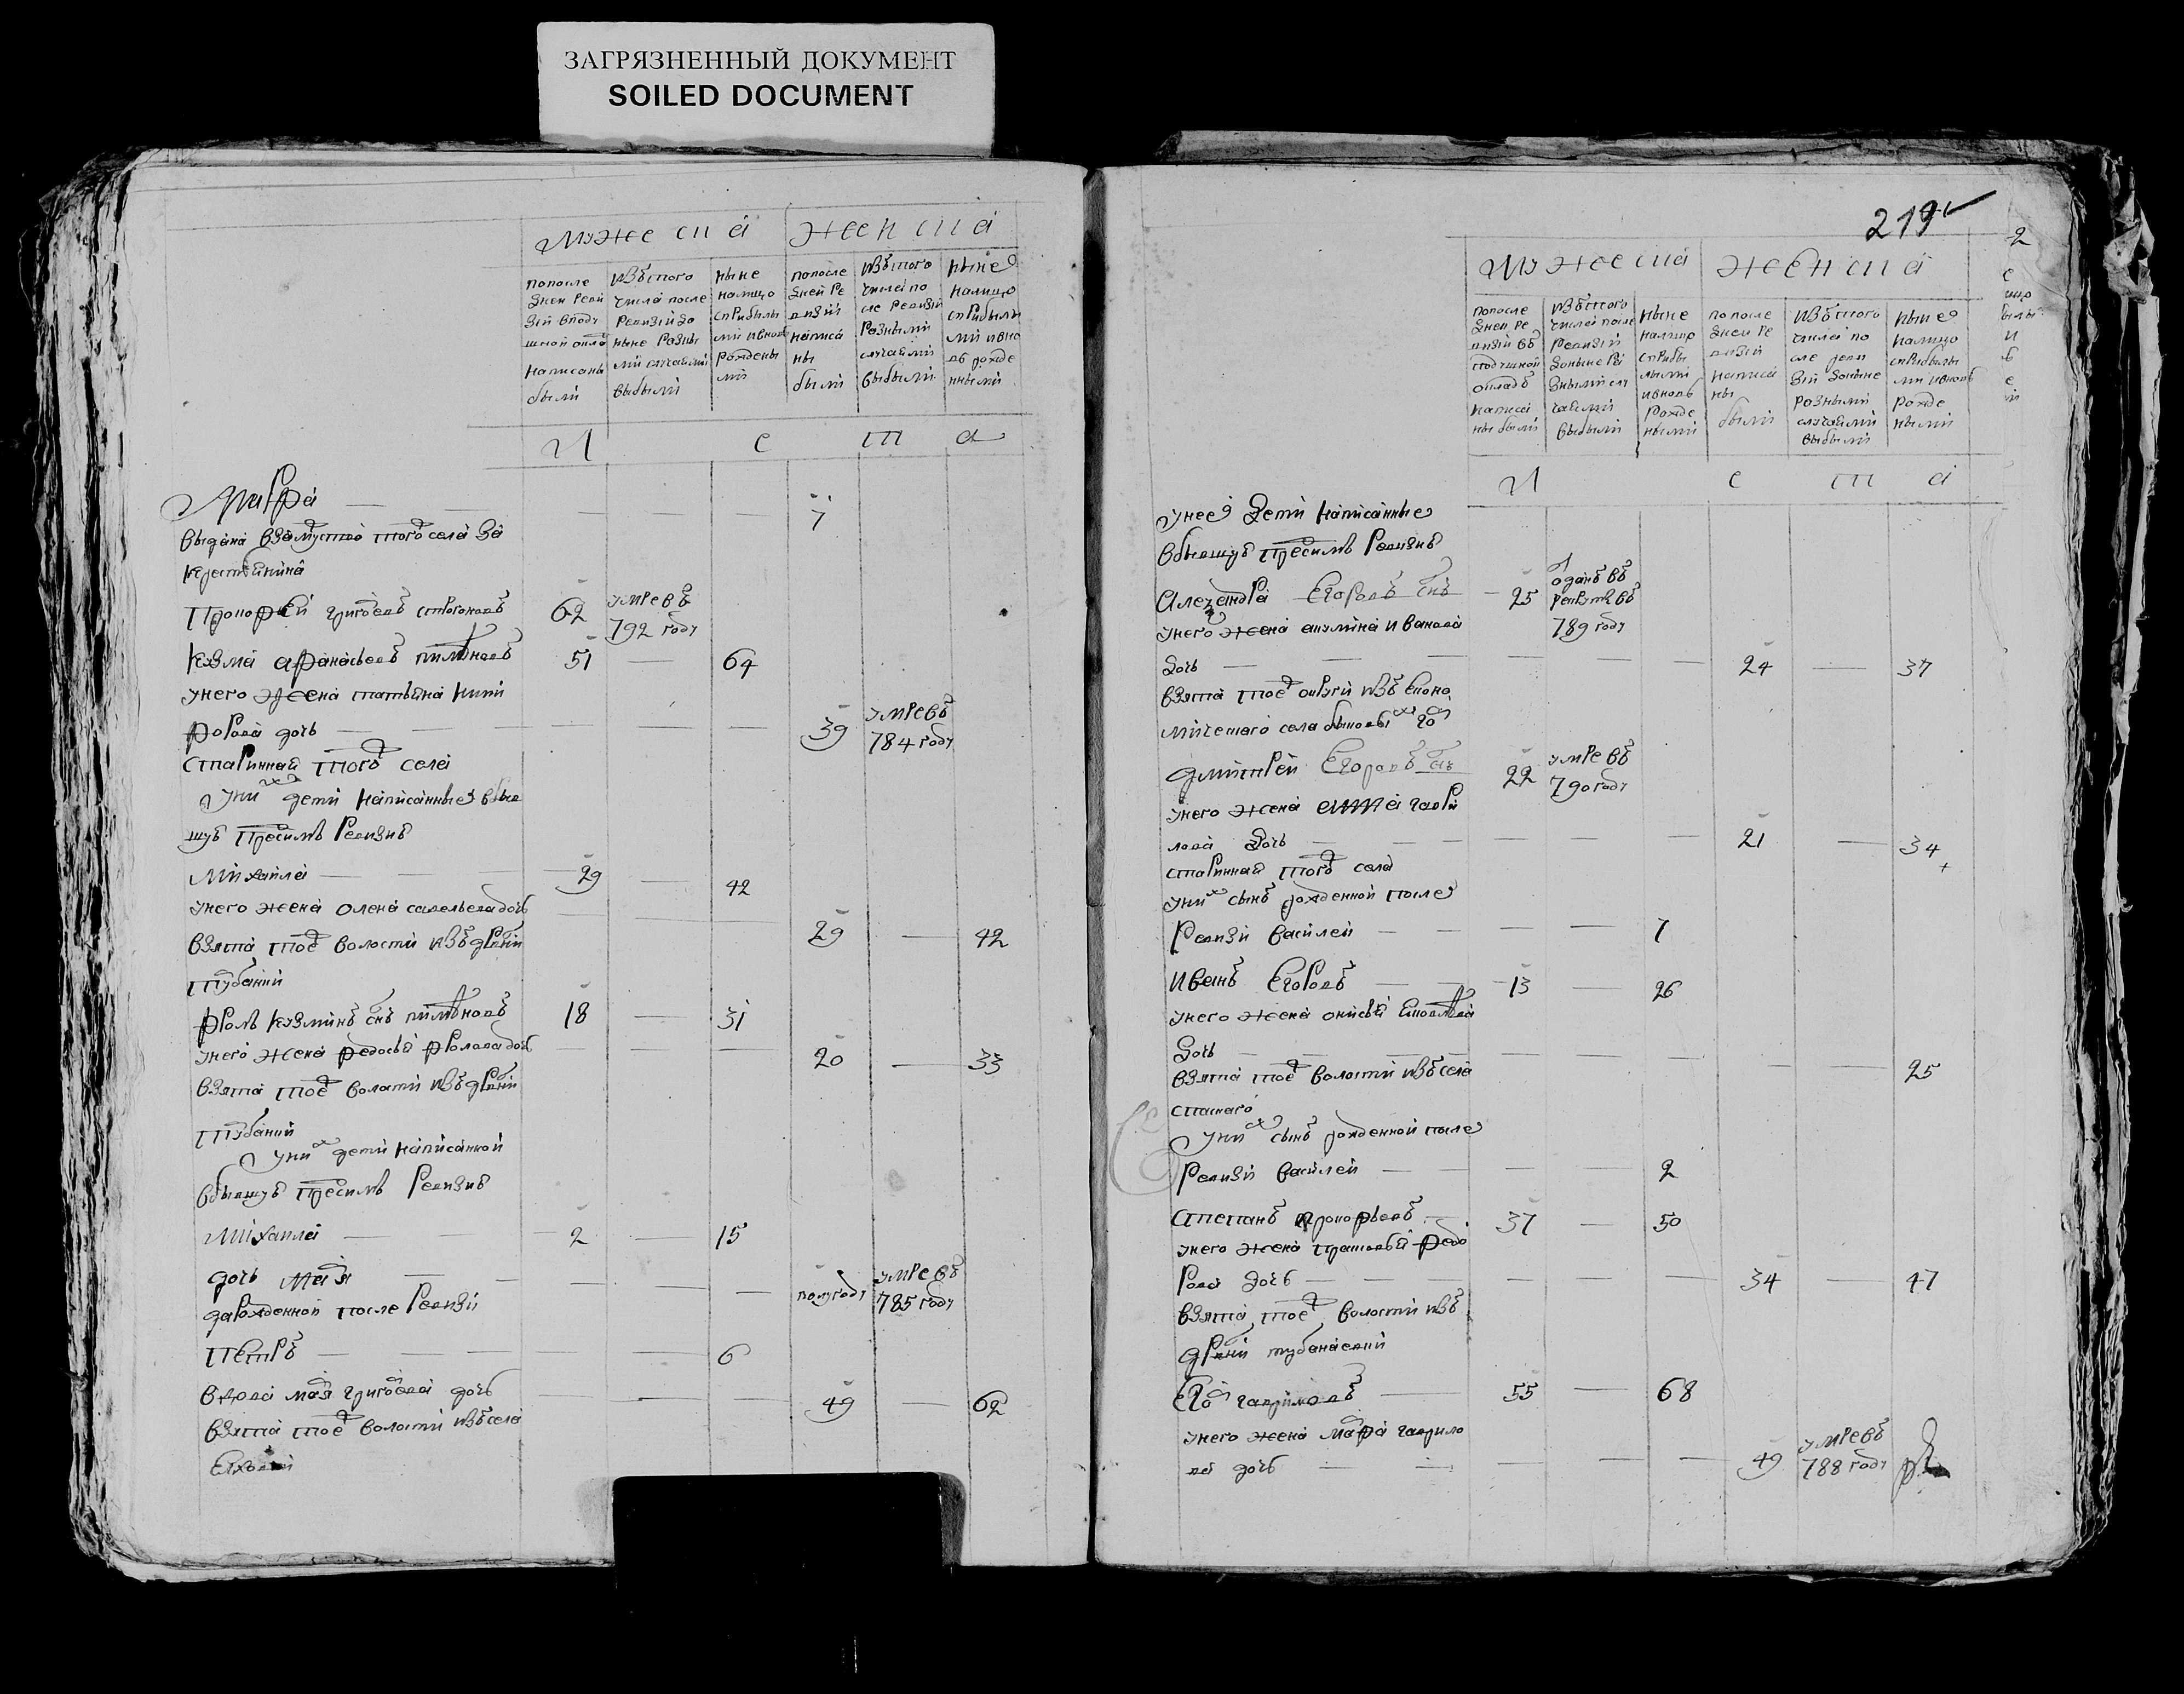 ЗАГРЯЗНЕННЫЙ ДОКУМЕНТ
SOILED DOCUMENT
Мужеска Женска
попосле
дней Реви
зїи вподу
написаны
были
изъ того
числа после
Ревизїи до
ныне разны
ми случаями
выбыли
ныне
налицо
сприбылы
ми ивновь
рожденны
ми
попосле
дней Ре
визїи
написа
ны
были
изъ того
числа по
сле Ревизїи
разными
случаями
выбыли
ныне
налицо
сприбылы
ми ивно
вь рожде
нными
Л е т а
Марфа 7
выдана взамужство того села за
крестьянина
Прокофей григорьевъ 62 умре въ
792 году
кузма афанасьевъ 51 64
унего жена татьяна ники
форова дочь 39 умре въ
784 году
старинная того села
уних дети написанные въ быв
шую пред симъ Ревизию
Михаила 29 42
унего жена олена савельева дочь
взята тоеж волости изъ дрвни 29 42
тубания
фролъ кузминъ снъ 18 31
унего жена федосья фролова дочь 20 33
взята тоеж волости изъ дрвни
тубания
уних дети написанной
в бывшую пред симъ Ревизию
Михаила 2 15
дочь Марья полугоду умре въ
785 году
да рожденной после Ревизїи
Петръ 6
вдова марья григорьева дочь 49 62
взята тоеж волости изъ села
219
Мужеска Женска
попосле
дней Ре
визїи въ
подушной
окладъ
написа
ны были
изъ того
числа после
Ревизїи
доныне ра
зными слу
чаями
выбыли
ныне
налицо
сприбы
лыми
ивновь
рожде
нными
попосле
дней Ре
визїи
написа
ны
были
изъ того
числа по
сле реви
зїи доныне
разными
случаями
выбыли
ныне
налицо
сприбылы
ми ивновь
рожде
нными
Л е т а
унее дети написанные
в бывшую пред симъ Ревизию
Александра Егоровъ снъ 25 отданъ въ
рекруты въ
789 году
унего жена акулина иванова
дочь 24 37
взята тоеж округи изъ Еконо
мического села
дмитрей Егоровъ снъ 22 умре въ
790 году
унего жена гаври
лова дочь 21 34
старинная того села
уних сынъ рожденной после
Ревизїи василей 7
иванъ Егоровъ 13 26
унего жена
дочь 25
взята тоеж волости изъ села
спаского
уних сынъ рожденной после
Ревизїи василей 2
степанъ прокофьевъ 37 50
унего жена прасковья федо
рова дочь 34 47
взята тоеж волости изъ
дрвни
Егоръ гавриловъ 55 68
унего жена марфа гаврило
ва дочь 49 умре въ
788 году